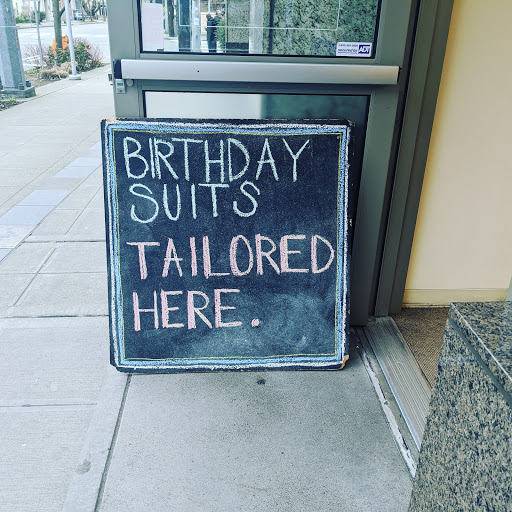 BIRTHDAY
SUITS
TAILORED
HERE.
ADT